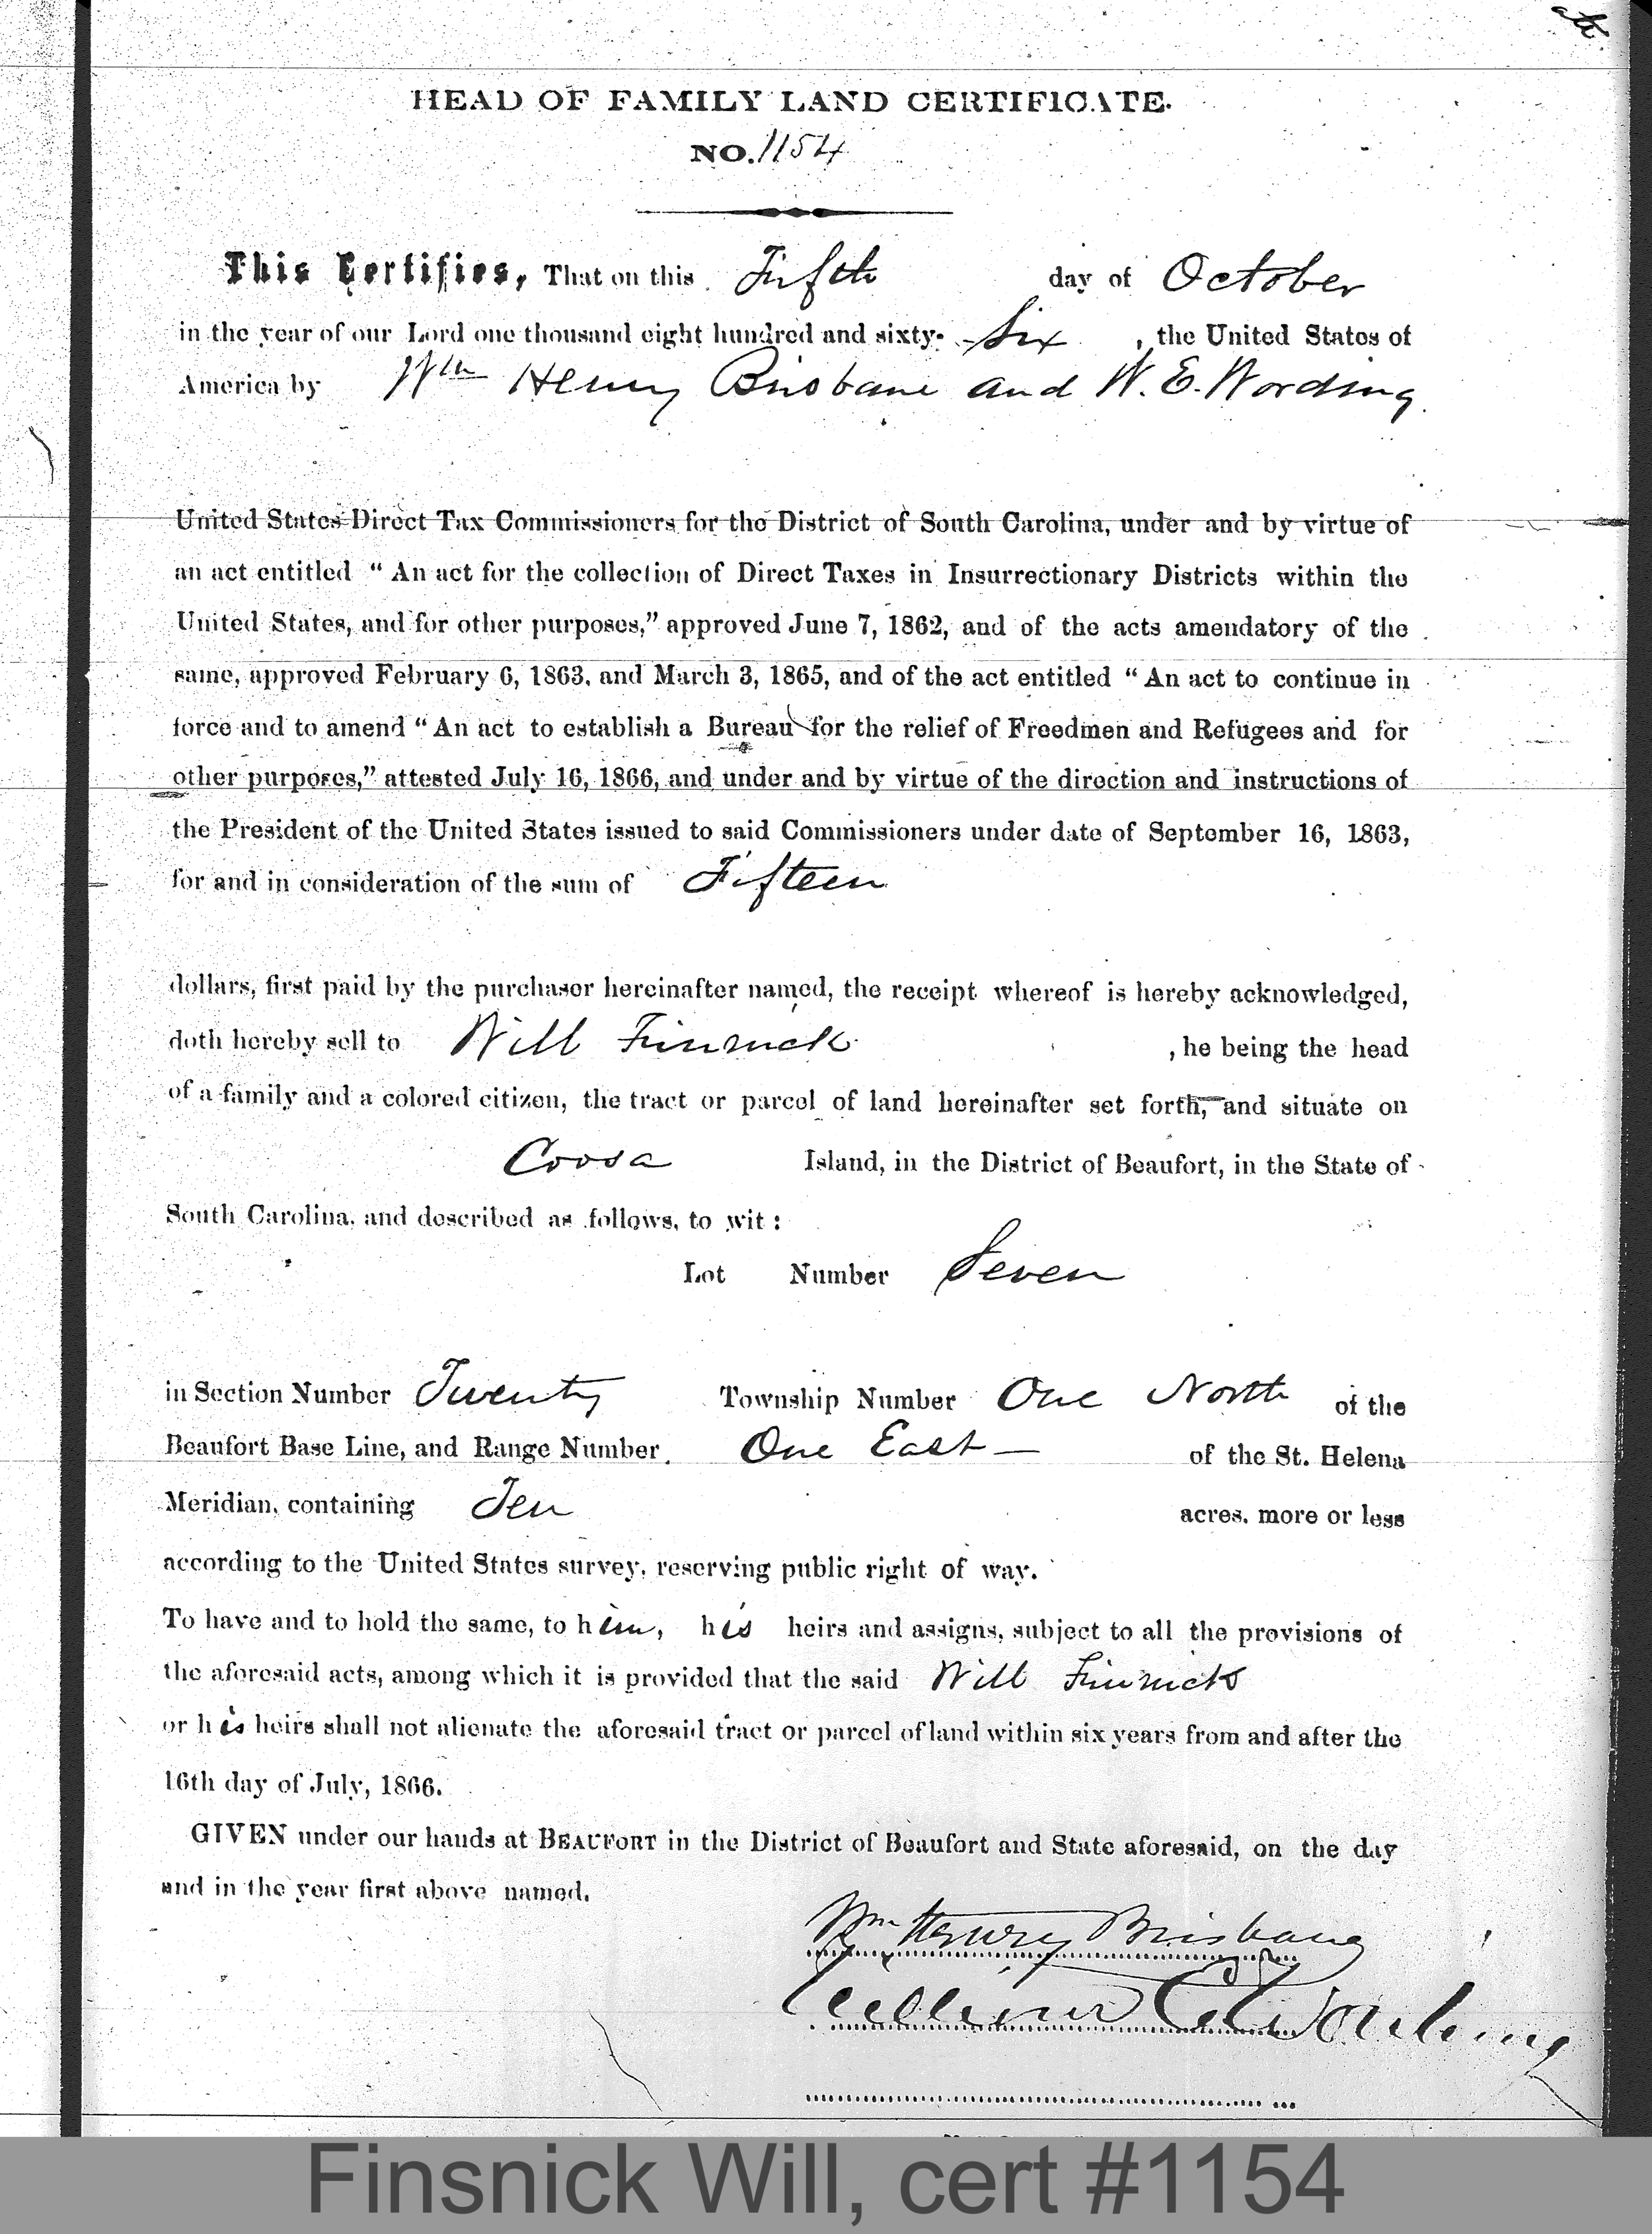 HEAD OF FAMILY LAND CERTIFICATE.
NO. 1154
This Certifies, That on this Fifth day of October
in the year of our Lord one thousand eight hundred and sixty- Six , the United States of
America by Wm Henry Brisbane and W. E. Wording
United States Direct Tax Commissioners for the District of South Carolina, under and by virtue of
an act entitled “ An act for the collection of Direct Taxes in Insurrectionary Districts within the
United States, and for other purposes,” approved June 7, 1862, and of the acts amendatory of the
same, approved February 6, 1863, and March 3, 1865, and of the act entitled “ An act to continue in
force and to amend “ An act to establish a Bureau for the relief of Freedmen and Refugees and for
other purposes,” attested July 16, 1866, and under and by virtue of the direction and instructions of
the President of the United States issued to said Commissioners under date of September 16, 1863,
for and in consideration of the sum of Fifteen
dollars, first paid by the purchaser hereinafter named, the receipt whereof is hereby acknowledged,
doth hereby sell to Will , he being the head
of a family and a colored citizen, the tract or parcel of land hereinafter set forth, and situate on
Coosa Island, in the District of Beaufort, in the State of
South Carolina, and described as follows, to wit :
Lot Number Seven
in Section Number Twenty Township Number One North of the
Beaufort Base Line, and Range Number One East of the St. Helena
Meridian, containing Ten acres, more or less
according to the United States survey, reserving public right of way.
To have and to hold the same, to him, his heirs and assigns, subject to all the provisions of
the aforesaid acts, among which it is provided that the said Will
or his heirs shall not alienate the aforesaid tract or parcel of land within six years from and after the
16th day of July, 1866.
GIVEN under our hands at BEAUFORT in the District of Beaufort and State aforesaid, on the day
and in the year first above named.
Wm Henry Brisbane
William E. Wording
Finsnick Will, cert #1154